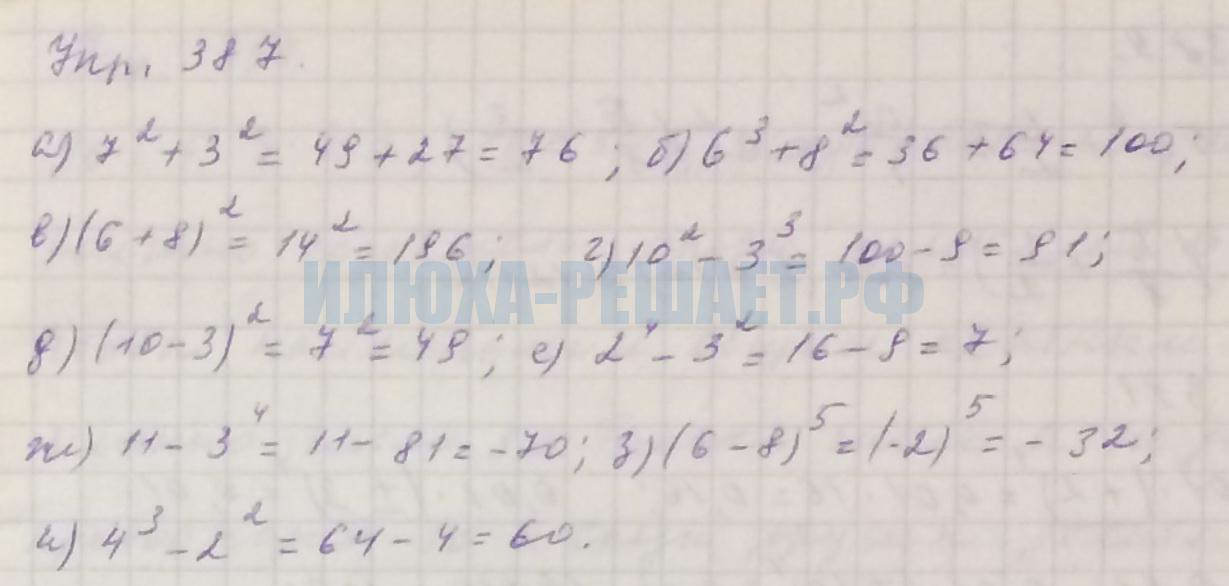 Упр. 387.
а) 7² + 3² = 49 + 27 = 76; б) 6³ + 8² = 36 + 64 = 100;
в) (6 + 8)² = 14² = 196; г) 10² - 3³ = 100 - 9 = 91;
ИЛЮХА-РЕШАЕТ.РФ
д) (10 - 3)² = 7² = 49; е) 2⁴ - 3² = 16 - 9 = 7;
ж) 11 - 3⁴ = 11 - 81 = -70; з) (6 - 8)⁵ = (-2)⁵ = - 32;
и) 4³ - 2² = 64 - 4 = 60.